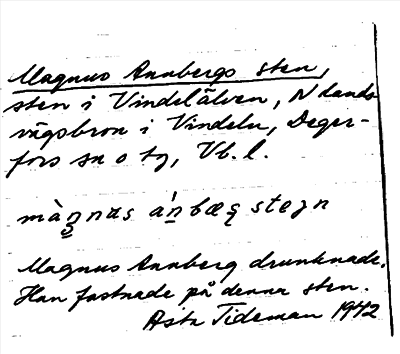 Magnus Annbergs sten,
sten i Vindelälven, N lands-
vägsbron i Vindeln, Deger-
fors sn o tg, Vb. l.
Magnus Annberg drunknade.
Han fastnade på denna sten.
Asta Tideman 1942